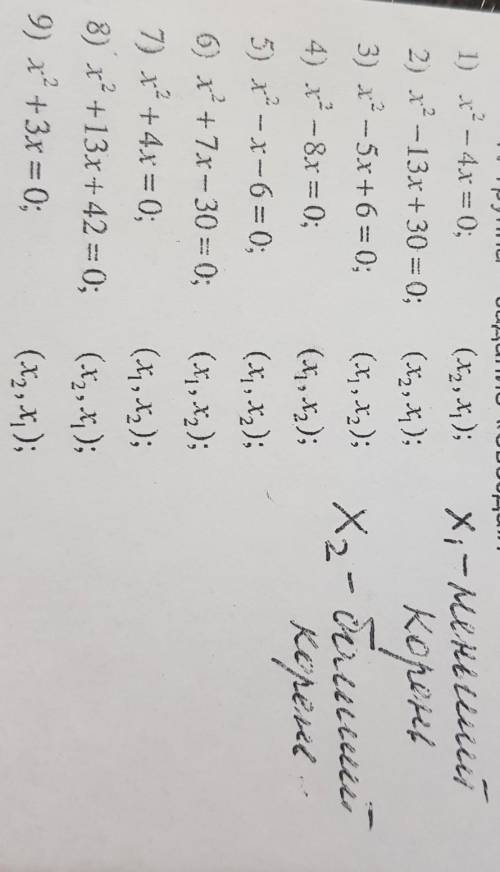 1) x² − 4x = 0; (x₂, x₁);
2) x² − 13x + 30 = 0; (x₂, x₁);
3) x² − 5x + 6 = 0; (x₁, x₂);
4) x² − 8x = 0; (x₁, x₂);
5) x² − x − 6 = 0; (x₁, x₂);
6) x² + 7x − 30 = 0; (x₁, x₂);
7) x² + 4x = 0; (x₁, x₂);
8) x² + 13x + 42 = 0; (x₂, x₁);
9) x² + 3x = 0; (x₂, x₁);
x₁ − меньший
корень
x₂ − больший
корень